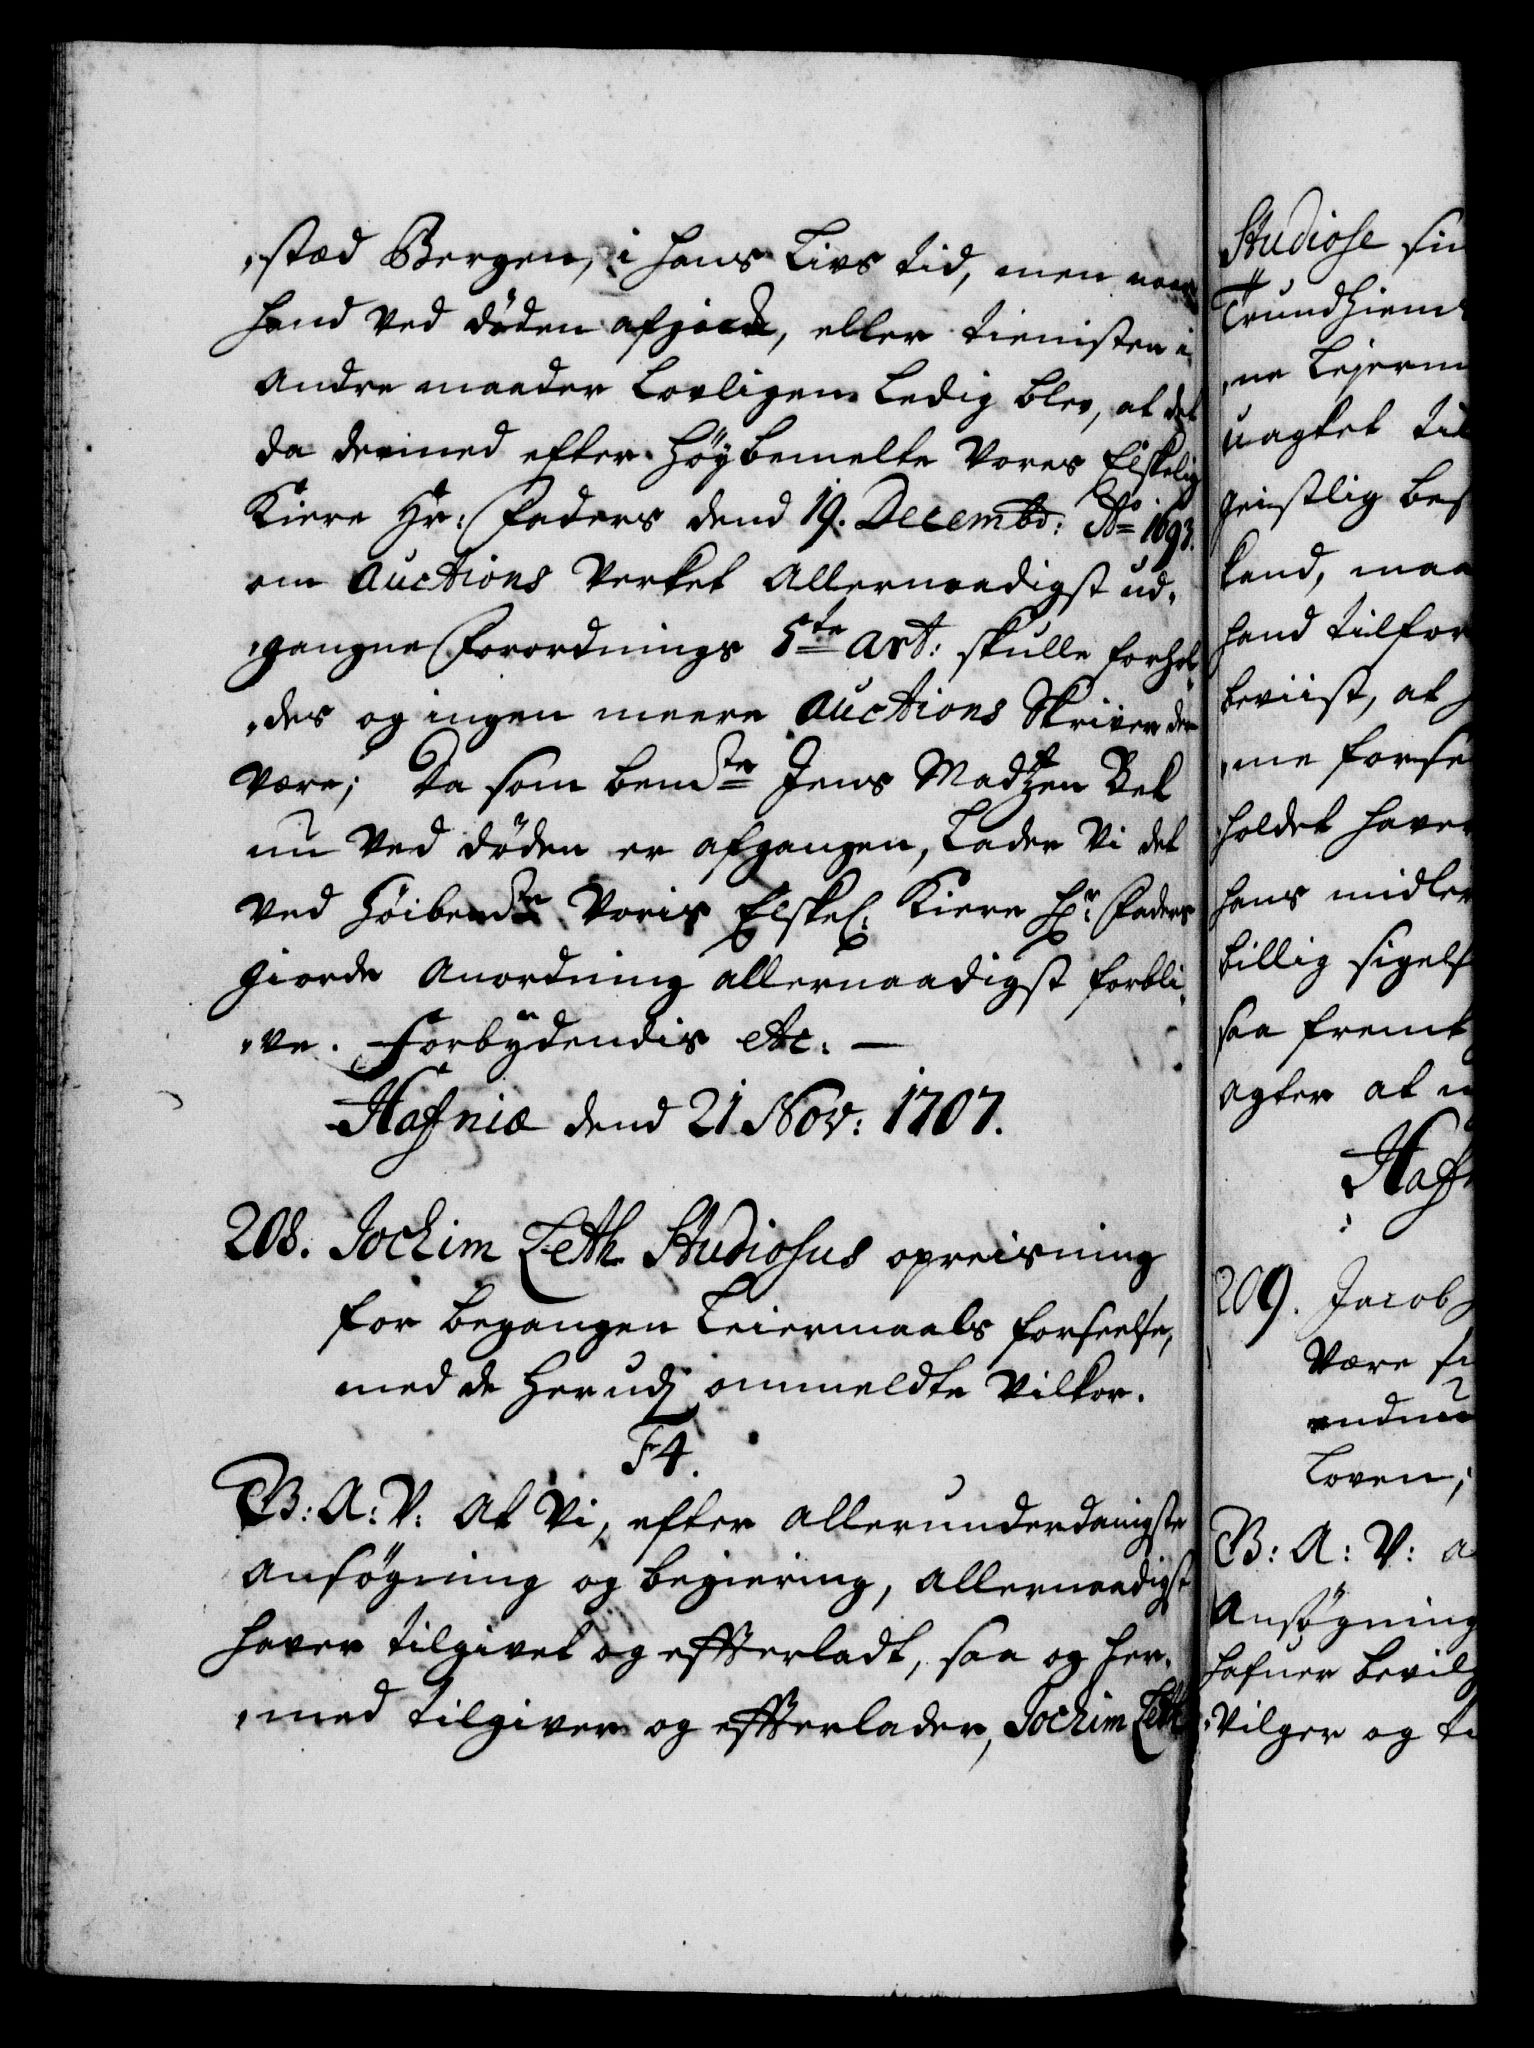 „stæd Bergen, i hans Livs tid, men naar
hand ved døden afgicde, eller tienisten i
Andre maader Lovligen Ledig blev, at det
da dermed efter Høybemelte Vores Elskelig
Kiere Hr: Faders dend 19. Decembr: Ao 1693.
om Auctions Verket Allernaadigst ud„
„gangne Forordnings 5te Art: skulle forhol„
„des og ingen meere Auctions Skriver der
være; Da som bemte Jens Madtzen Bek
nu ved døden er afgangen, Lader Vi det
ved Høibemte Voris Elskel: Kiere Hr: Faders
giorde Anordning allernaadigst forbli„
„ve. Forbydendis etc. —
Hafniæ dend 21 Nov: 1707.
208. Jochim Leth Studiosus opreisning
for begangen Leiermaals forseelse,
med de herudj ommeldte vilkor.
F4.
B: A: V: At Vi, efter allerunderdanigste
Ansøgning og begiering, allernaadigst
haver tilgivet og effterladt, saa og her„
„med tilgiver og effterlader, Jochim Leth
Studiose sin
Trundhiem
„ne Lejerm
uagtet til
geistlig bes
stand, maa
hand tilfor
beviist, at
„me forse
holdet haver
hans midler
billig
saa fremt
agter at
Haf
209. Jacob
være
endnu
Loven;
B: A: V: a
Ansøgning
hafuer bevilg
„vilger og ti